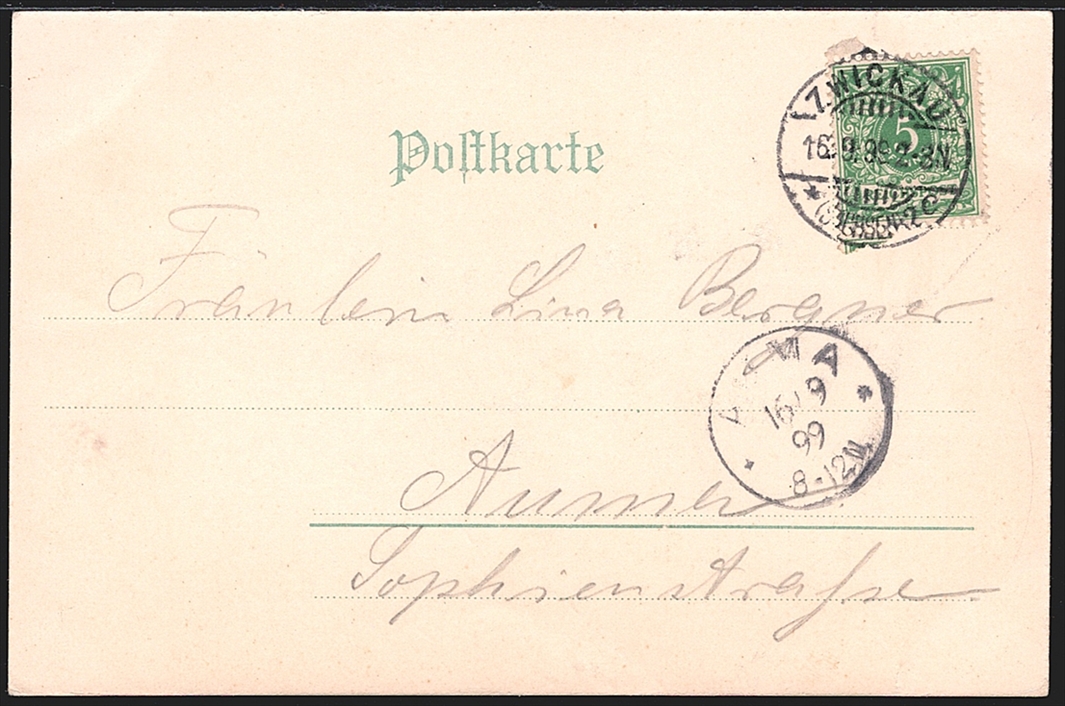 Postkarte
ZWICKAU
16.9.99.2-3N.
(SACHSEN) 2 C
5
Fräulein Lina Bergner
MA
16/9
99
8-12N.
Sophienstraße